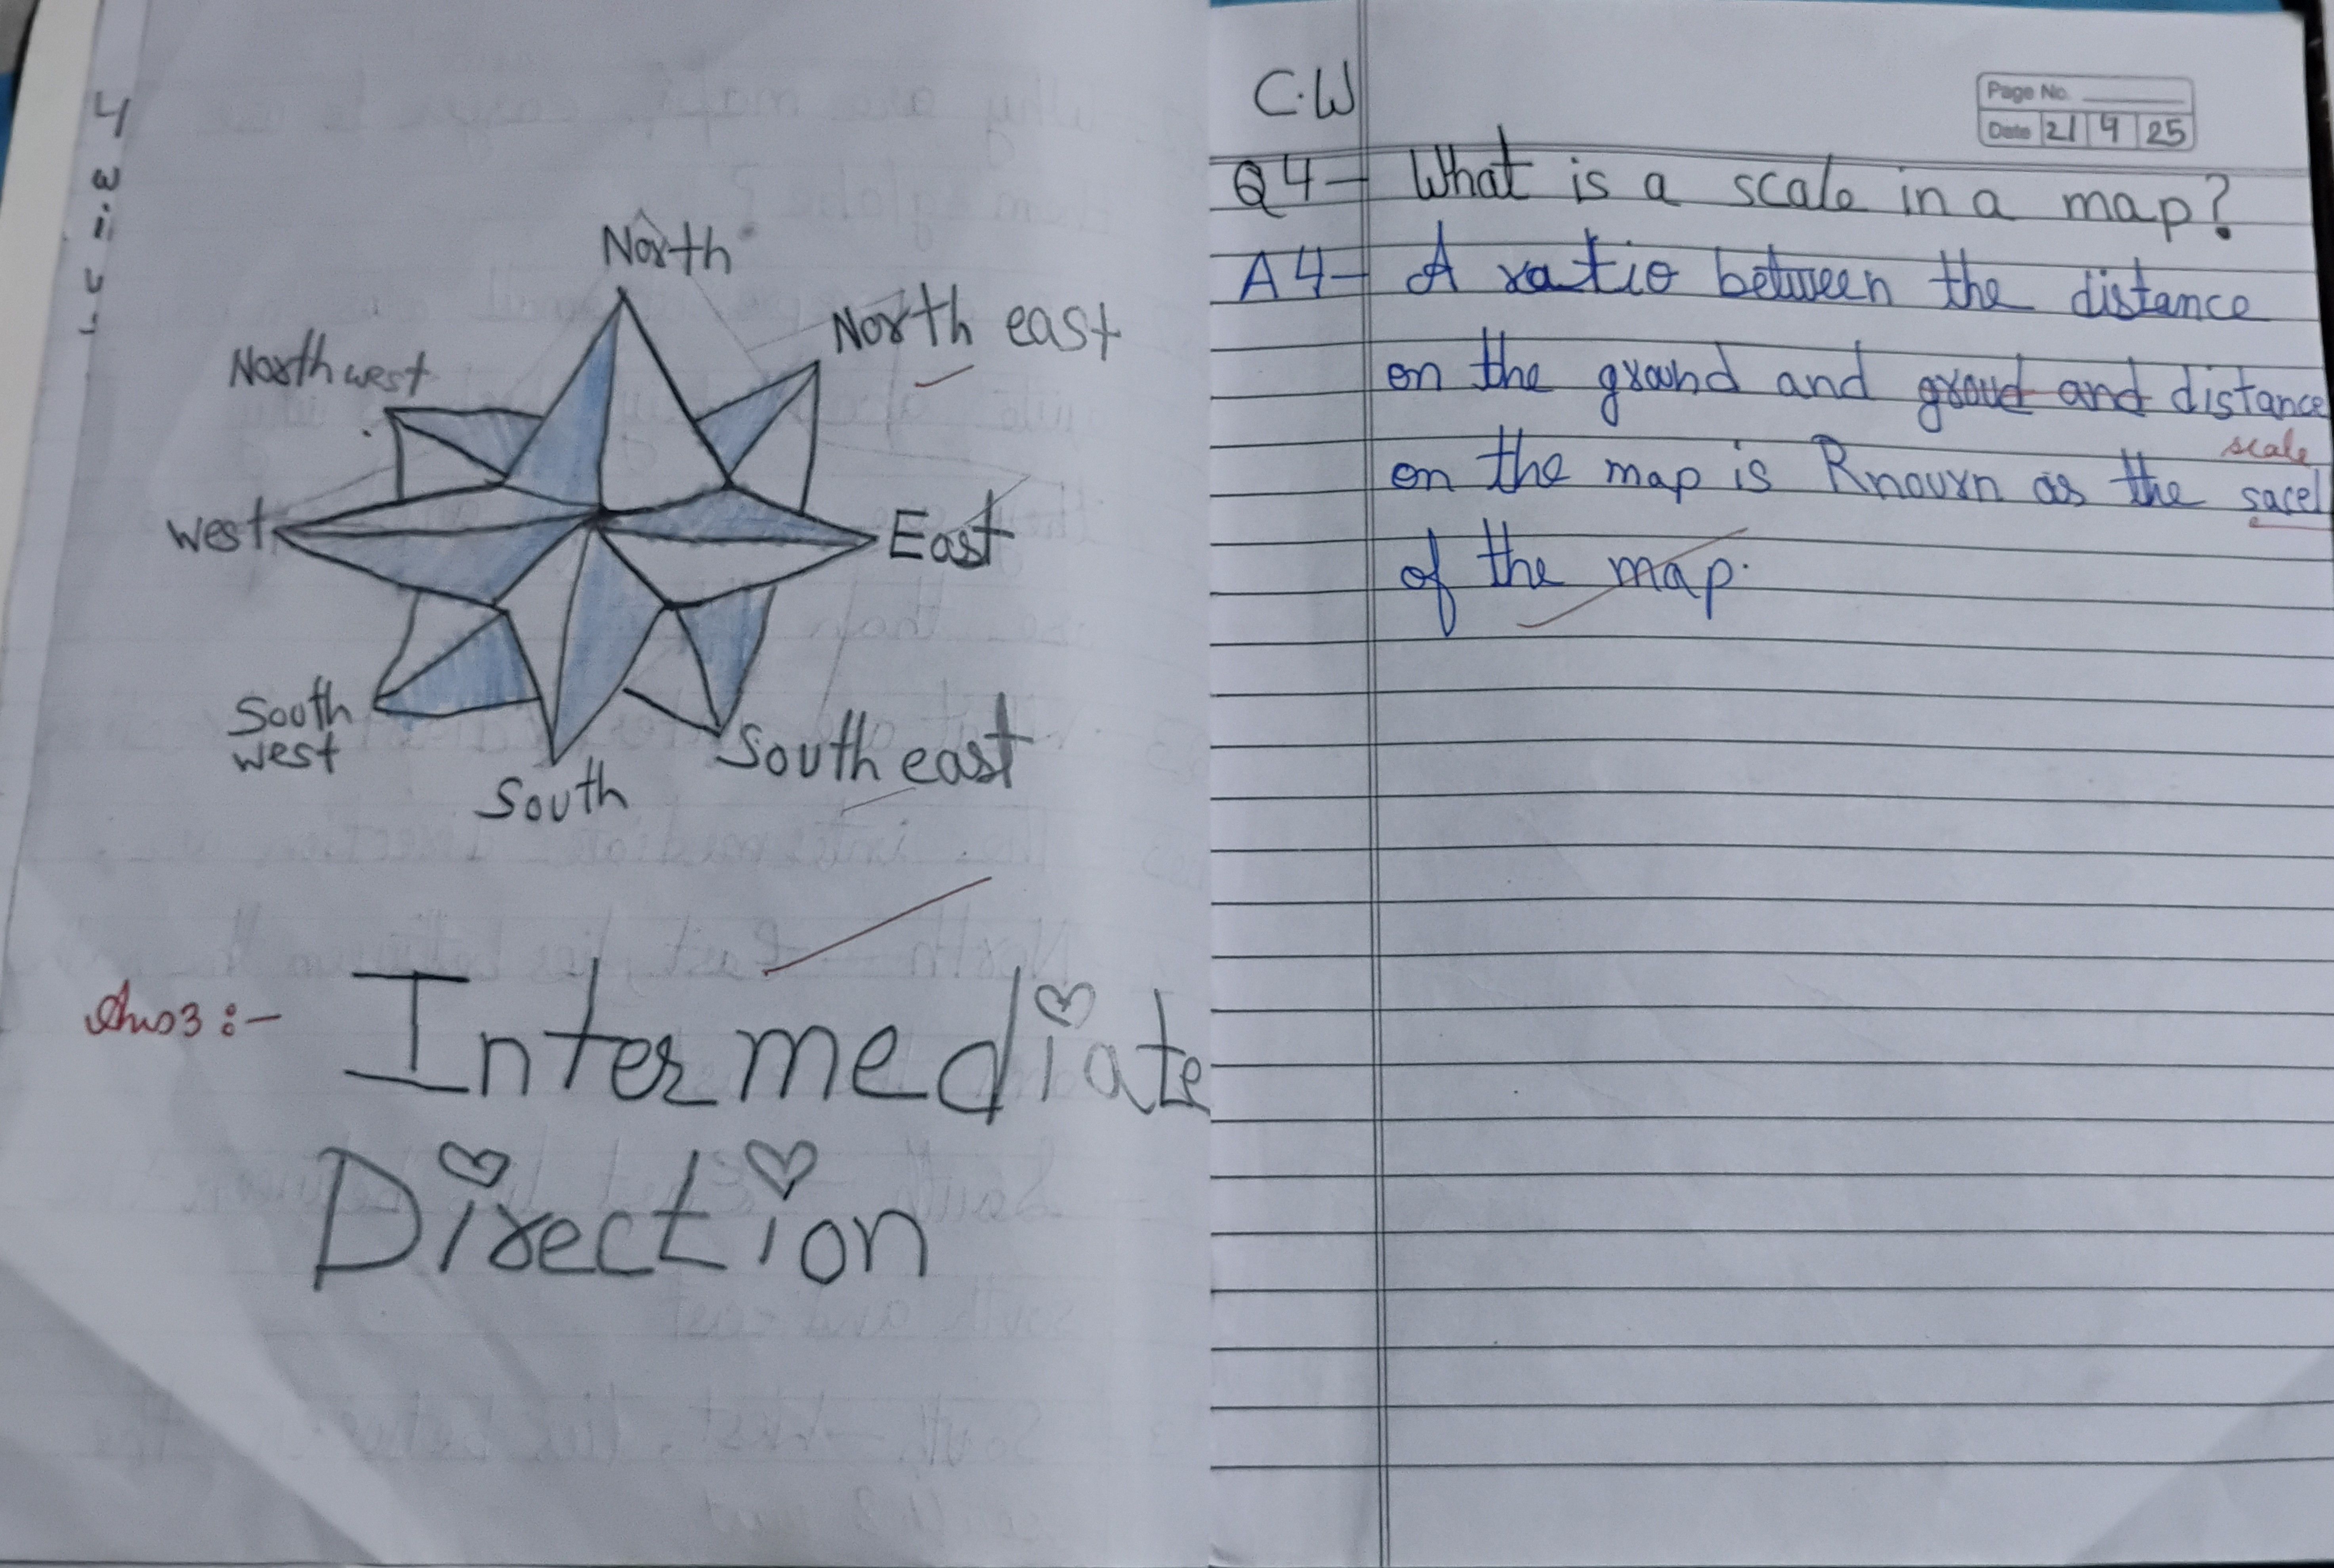 4
3
ii
North
North east
North west
west
East
South
west
South east
South
Ans 3 :-
Intermediate
Direction
C.W
Page No.
Date 21 9 25
Q4- What is a scale in a map?
A4- A ratio between the distance
on the ground and groud and distance
scale
on the map is Rnowrn as the sacel
of the map.